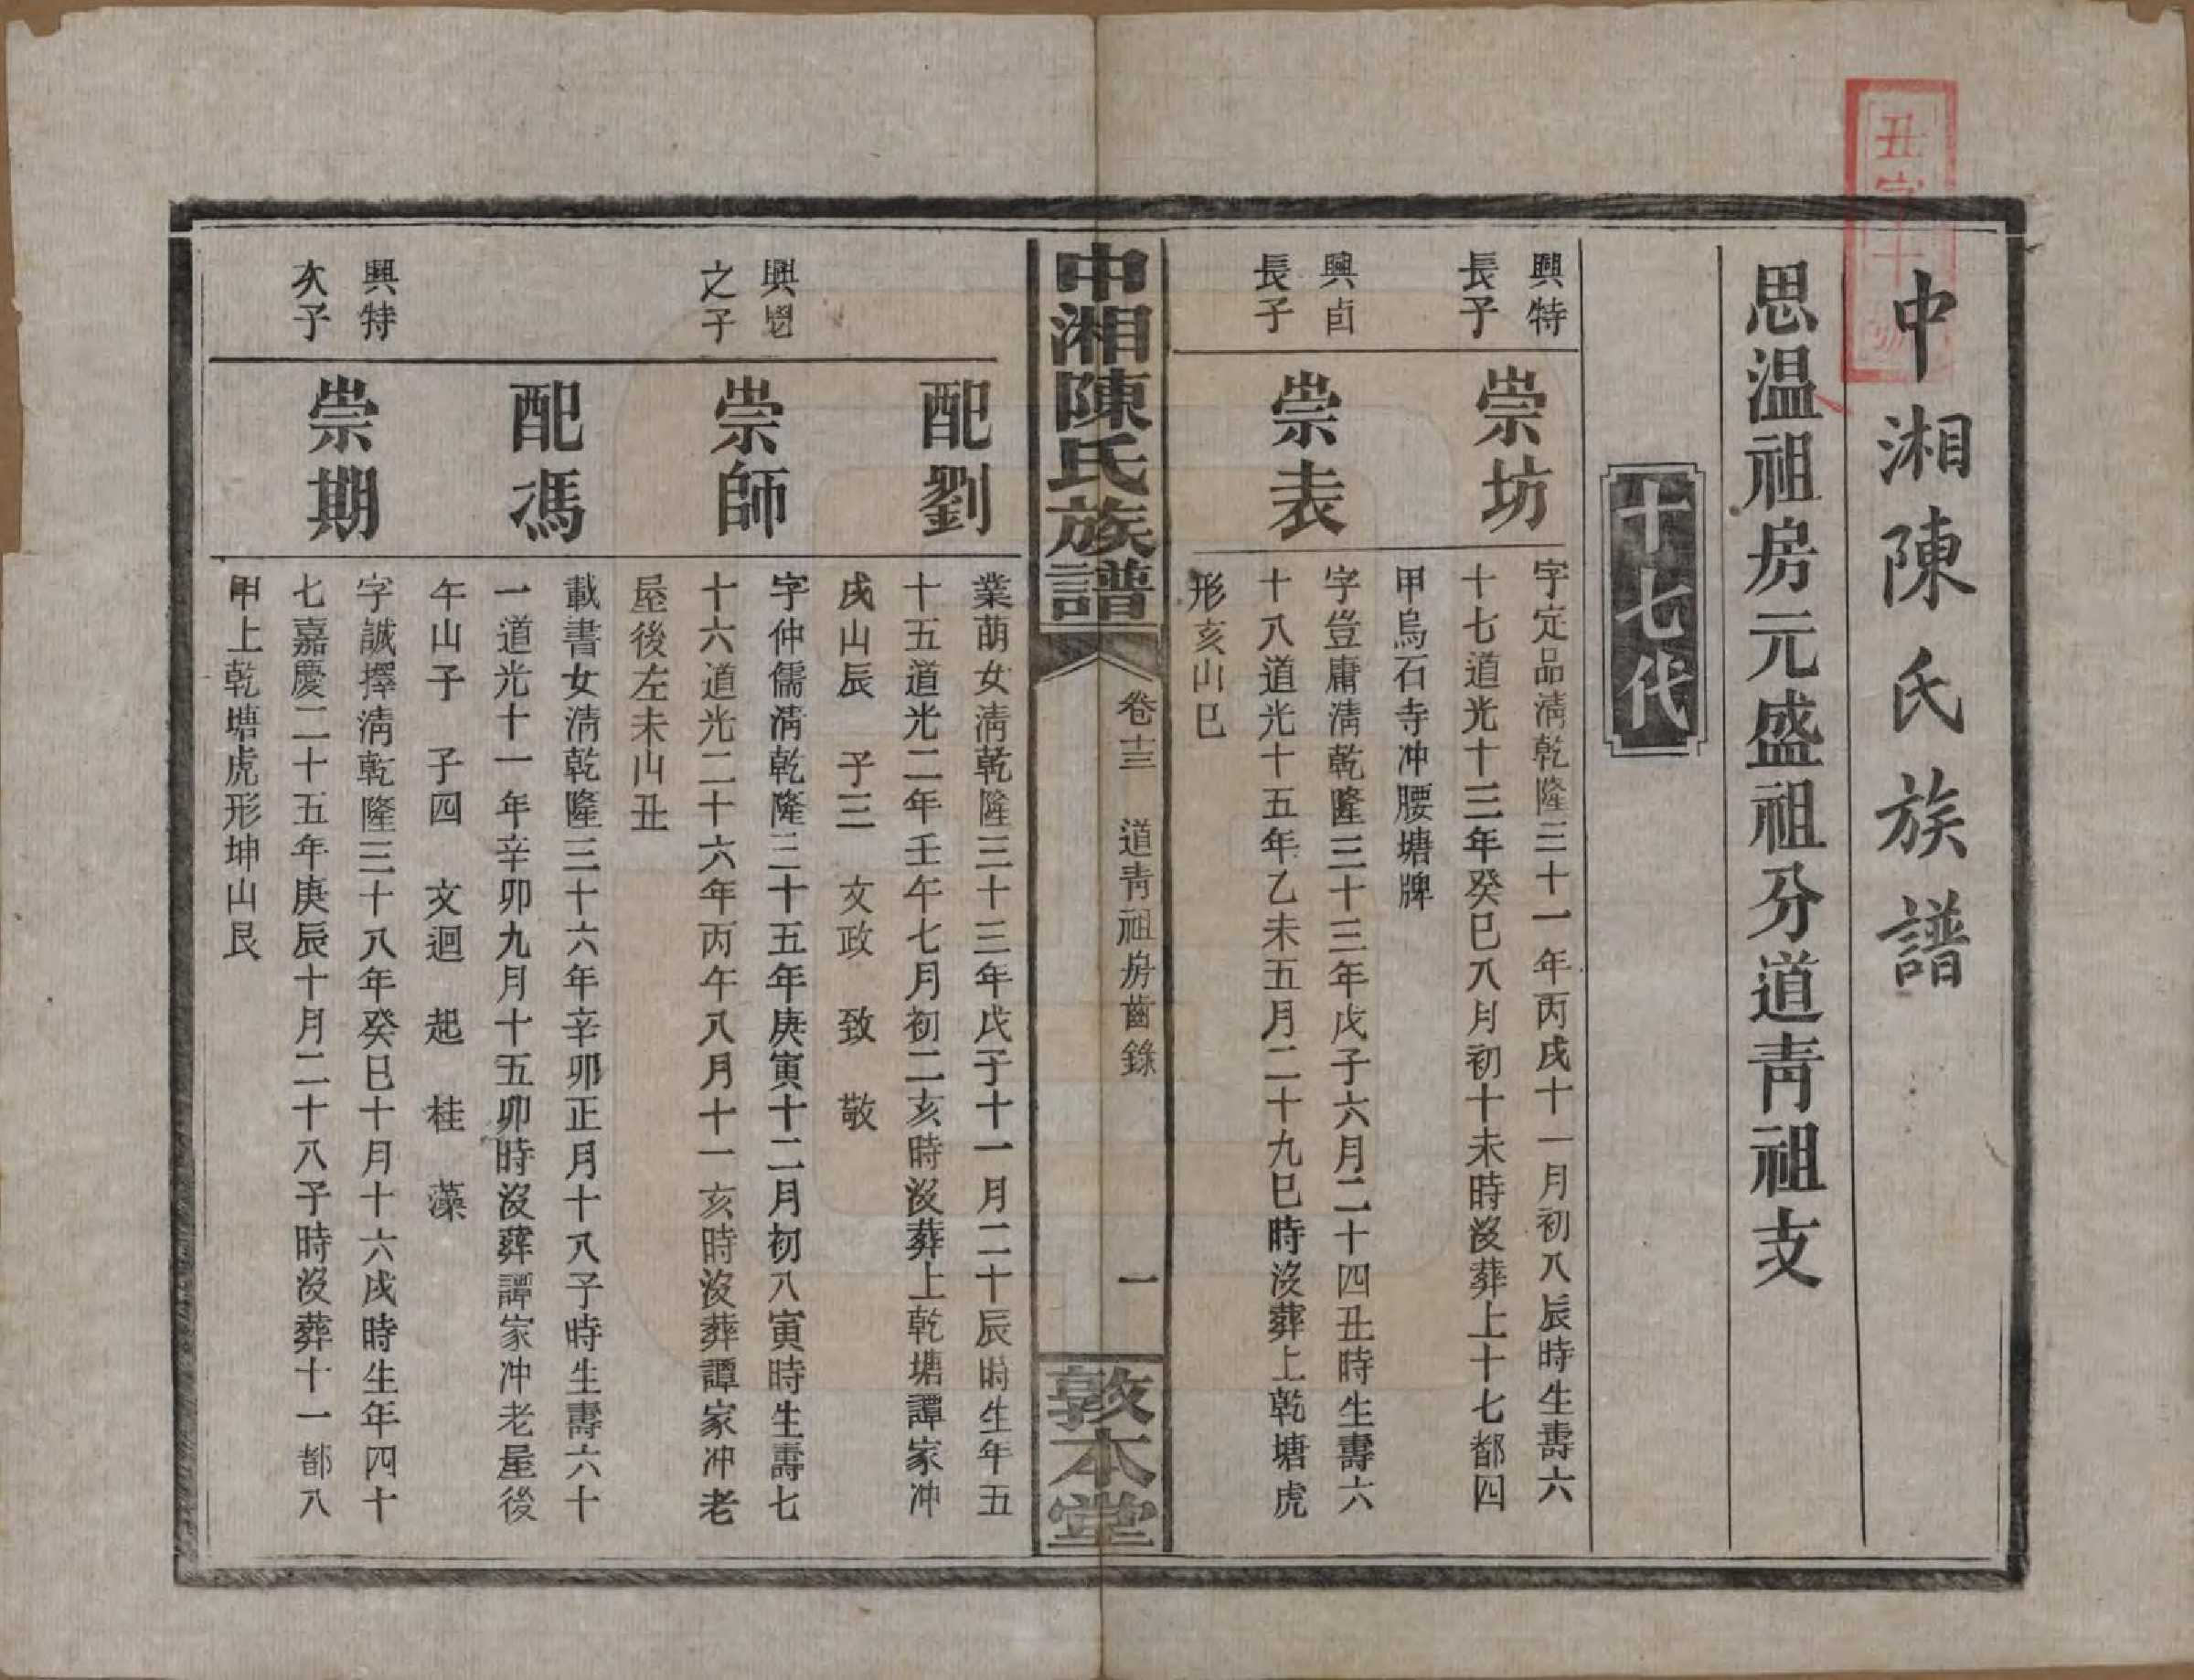 丑字十
中湘陳氏族譜
思温祖房元盛祖分道青祖支
十七代
興特
長子
崇坊
字定品淸乾隆三十一年丙戌十一月初八辰時生壽六
十七道光十三年癸巳八月初十未時沒葬上十七都四
甲烏石寺冲腰塘牌
興卣
長子
崇表
字豈庸淸乾隆三十三年戊子六月二十四丑時生壽六
十八道光十五年乙未五月二十九巳時沒葬上乾塘虎
形亥山巳
中湘陳氏族譜
卷十三
道青祖房齒錄
一
敦本堂
配劉
業萠女淸乾隆三十三年戊子十一月二十辰時生年五
十五道光二年壬午七月初二亥時沒葬上乾塘譚家冲
戌山辰 子三 文政 致 敬
興
之子
崇師
字仲儒淸乾隆三十五年庚寅十二月初八寅時生壽七
十六道光二十六年丙午八月十一亥時沒葬譚家冲老
屋後左未山丑
配馮
載書女淸乾隆三十六年辛卯正月十八子時生壽六十
一道光十一年辛卯九月十五卯時沒葬譚家冲老屋後
午山子 子四 文迴 起 桂 藻
興特
次子
崇期
字誠擇淸乾隆三十八年癸巳十月十六戌時生年四十
七嘉慶二十五年庚辰十月二十八子時沒葬十一都八
甲上乾塘虎形坤山艮